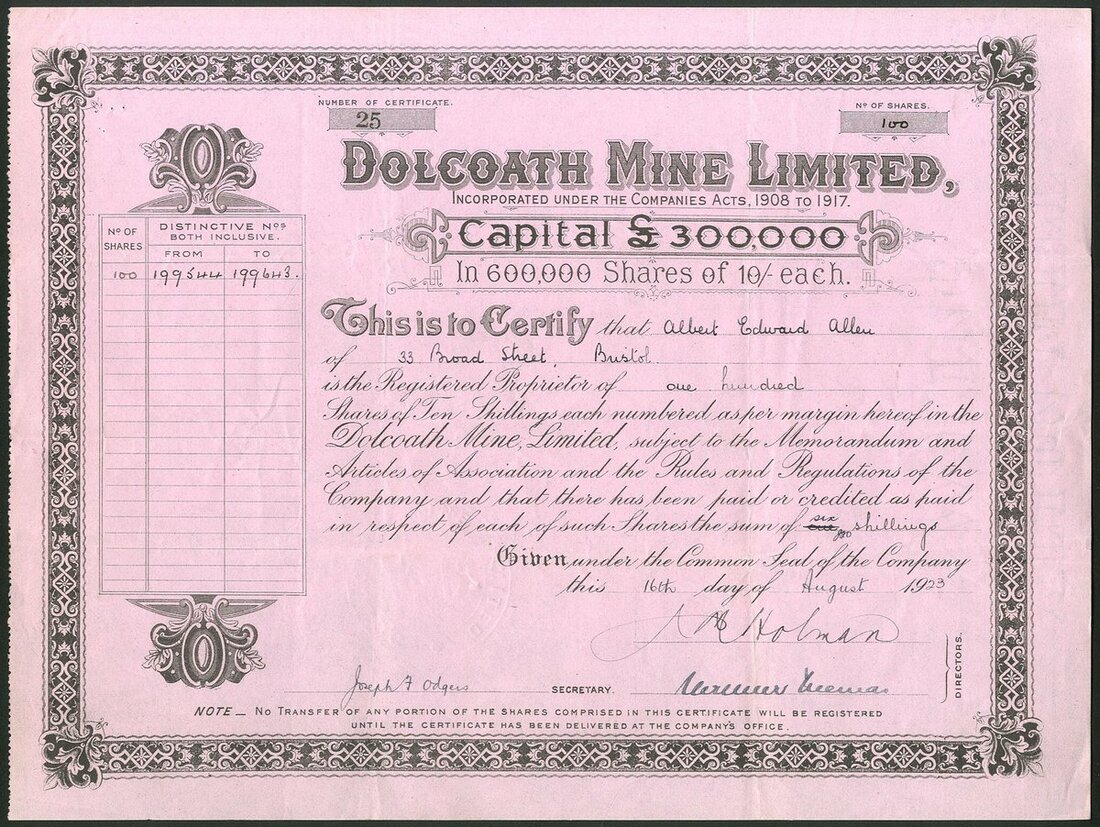 NUMBER OF CERTIFICATE.
25
Nº OF SHARES.
100
DOLCOATH MINE LIMITED,
INCORPORATED UNDER THE COMPANIES ACTS, 1908 TO 1917.
Capital £ 300,000
In 600,000 Shares of 10/- each.
Nº OF SHARES
DISTINCTIVE Nos
BOTH INCLUSIVE.
FROM TO
100 199544 199643.
This is to Certify that Albert Edward Allen
of 33 Broad Street, Bristol.
is the Registered Proprietor of one hundred
Shares of Ten Shillings each numbered as per margin hereof in the
Dolcoath Mine, Limited, subject to the Memorandum and
Articles of Association and the Rules and Regulations of the
Company and that there has been paid or credited as paid
in respect of each of such Shares the sum of six shillings
Given under the Common Seal of the Company
this 16th day of August 1923
Holman
DIRECTORS.
Joseph F Odgers SECRETARY.
NOTE _ NO TRANSFER OF ANY PORTION OF THE SHARES COMPRISED IN THIS CERTIFICATE WILL BE REGISTERED
UNTIL THE CERTIFICATE HAS BEEN DELIVERED AT THE COMPANY'S OFFICE.